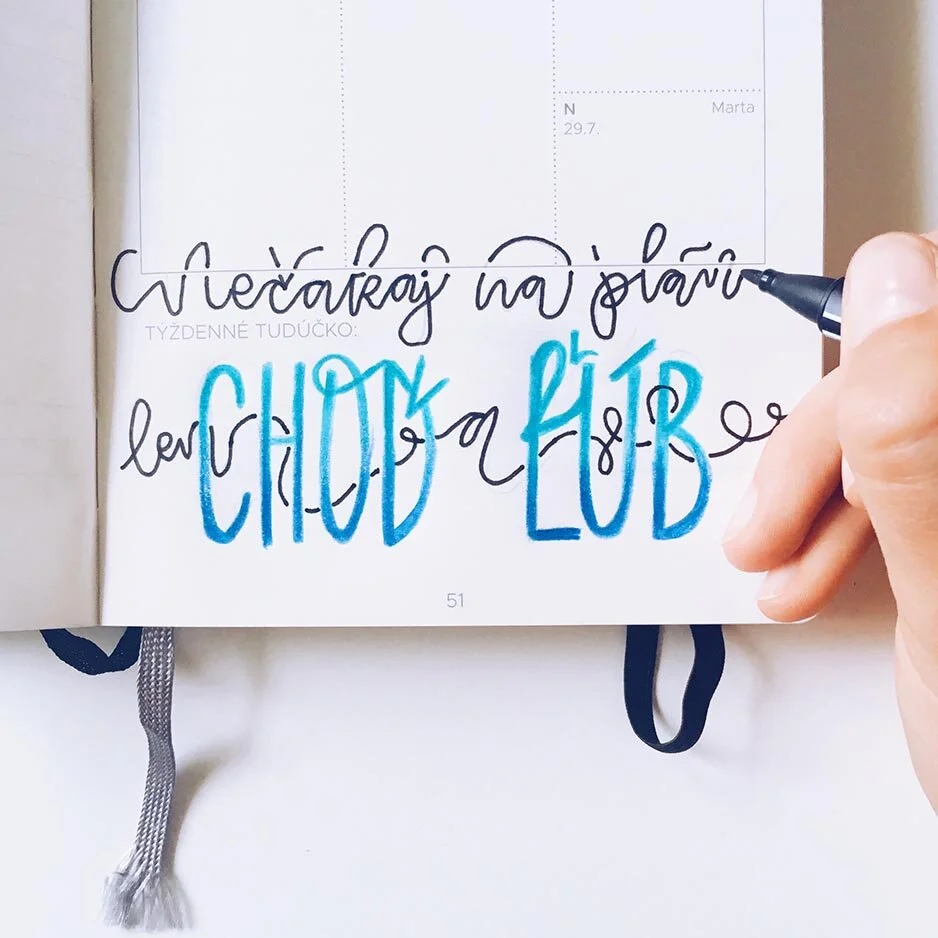 N Marta
29.7.
Nečakaj na plán
TÝŽDENNÉ TUDÚČKO:
len CHOĎ a ĽÚB
51